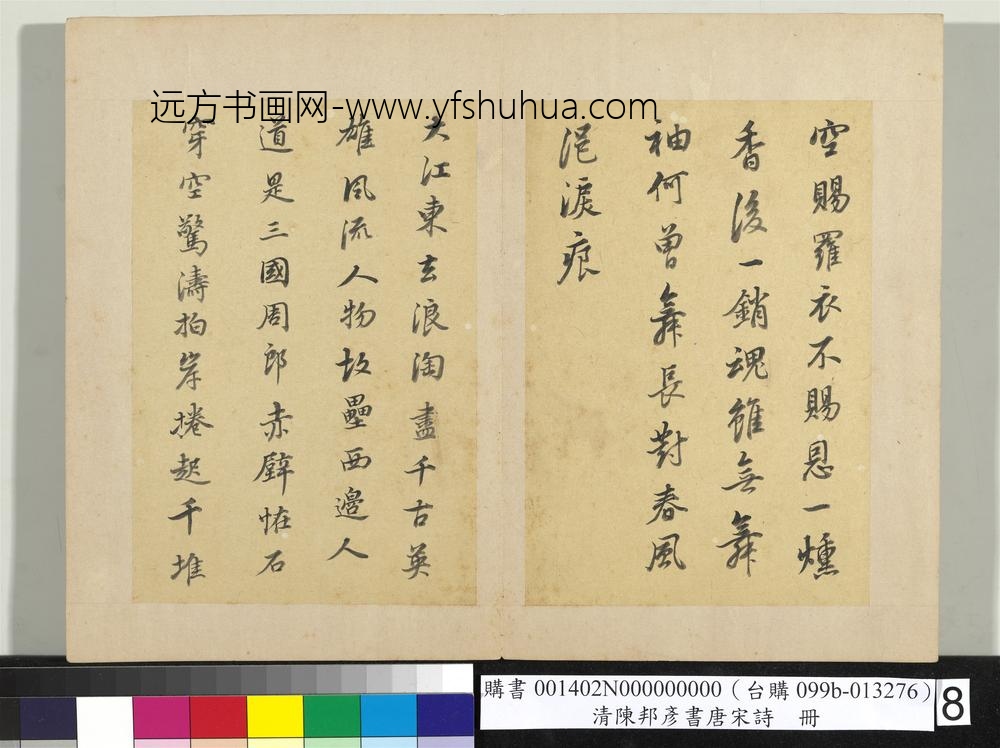 远方书画网-www.yfshuhua.com
空賜羅衣不賜恩一燻
香後一銷魂雖無舞
袖何曾舞長對春風
浥淚痕
大江東去浪淘盡千古英
雄風流人物故壘西邊人
道是三國周郎赤壁怪石
穿空驚濤拍岸捲起千堆
購書 001402N000000000（台購 099b-013276）
清陳邦彥書唐宋詩 冊
8